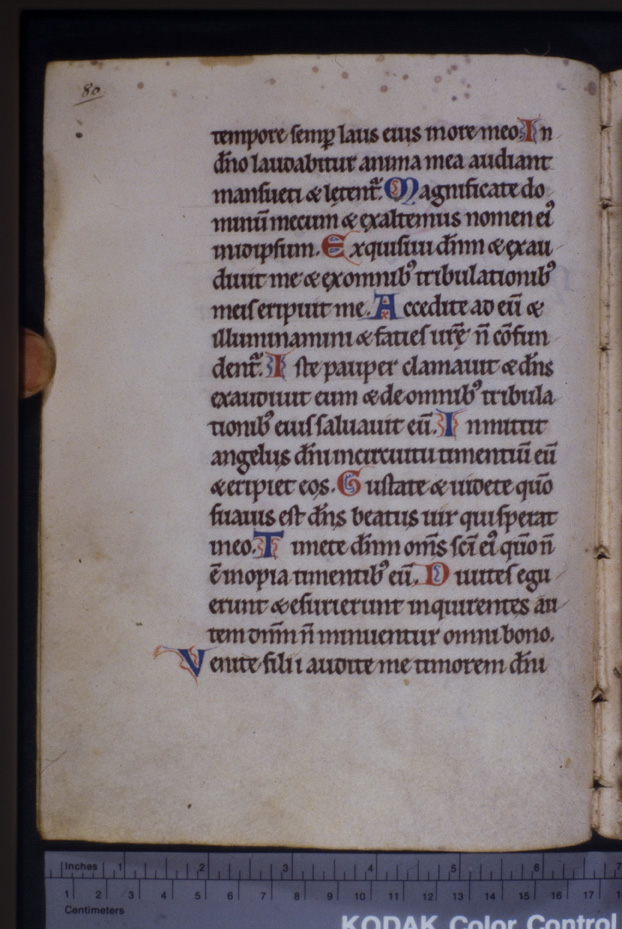 80
tempore semꝑ laus eius more meo In
dn̄o laudabitur anima mea audiant
mansueti & lętent᷑. Magnificate do
minū mecum & exaltemus nomen eiꝰ
inidipsum. Exquisiui dn̄m & exau
diuit me & exomnibꝰ tribulationibꝰ
meis eripuit me. Accedite ad eū &
illuminamini & facies ur̄ę n̄ cōfun
dent᷑. Iste pauper clamauit & dn̄s
exaudiuit eum & de omnibꝰ tribula
tionibꝰ eius saluauit eū. Inmittit
angelus dn̄i incircuitu timentiū eū
& eripiet eos. Gustate & uidete quō
suauis est dn̄s beatus uir qui sperat
ineo. Timete dn̄m om̄s sc̄i eiꝰ quō n̄
ē inopia timentibꝰ eū. Diuites egu
erunt & esurierunt inquirentes au
tem dn̄m n̄ minuentur omni bono.
Venite filii audite me timorem dn̄i
Inches 1 2 3 4 5 6 7
1 2 3 4 5 6 7 8 9 10 11 12 13 14 15 16 17
Centimeters
KODAK Color Control